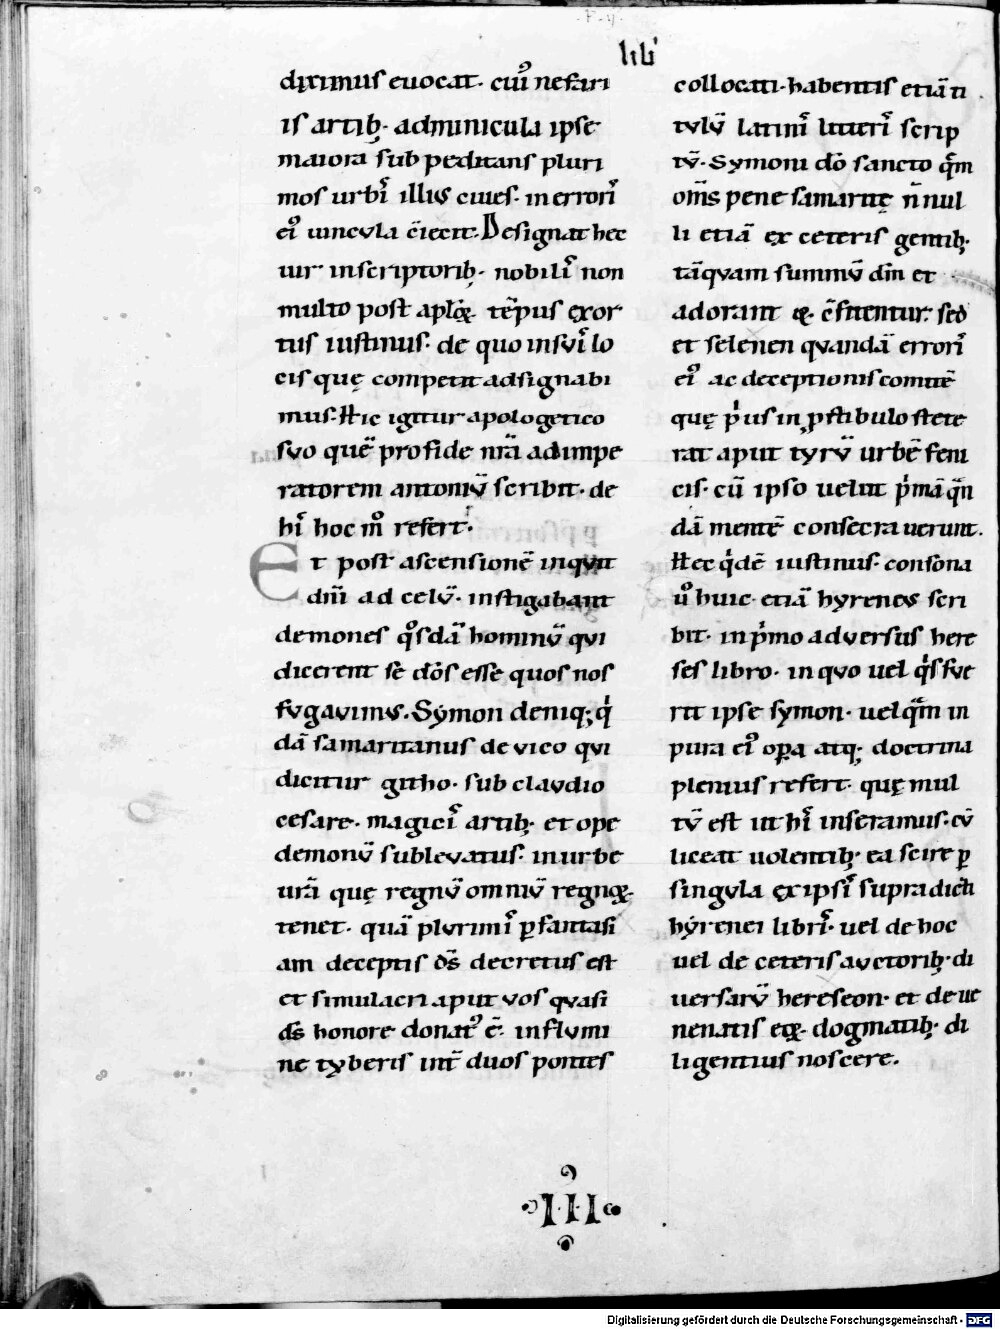 lib'
diximus euocat. cui᷒ nefari
is artib; adminicula ipse
maiora subpeditans pluri
mos urbı̄ illius ciues. inerrorı̄
ei᷒ uincula c̄iecit. Designat hec
uir inscriptorib; nobilı̄ non
multo post aplo℞ te᷒pus exor
tus iustinus. de quo insuı̄ lo
cis quę competit adsignabi
mus. Hic igitur apologetico
suo quē profide nr̄a adimpe
ratorem antoniū scribit. de
hı̄ hoc m̊ refert.
Et post ascensionē inquit
dn̄i ad celū. instigabant
demones qͦsdā hominū qui
dicerent sē dōs esse quos nos
fugauimus. Symon deniq; qͥ
dā samaritanus de uico qui
dicitur githo. sub claudio
cesare. magicı̄ artib; et ope
demonū subleuatus. inurbe
ur̄a quę regnū omniū regno℞
tenet. quā plurimı̄ ꝑfantasi
am deceptis ds̄ decretus est
et simulacri aput uos quasi
ds̄ honore donat᷒ ē. influmi
ne tyberis int̄ duos pontes
collocati. habentis etiā ti
tulū latinı̄ litterı̄ scrip
tū. Symoni dō sancto qm̄
om̄s pene samaritę n̄nul
li etiā ex ceteris gentib;
tāquam summū dm̄ et
adorant et c̄fitentur. sed
et selenen quandā errorı̄
ei᷒ ac deceptionis comitē
quę pͥus in ꝓstibulo stete
rat aput tyrū urbē feni
cis. cū ipso uelut pͥmā qn̄
dā mentē consecrauerunt.
Hec qͥdē iustinus. consona
u᷒ huic. etiā hyreneus scri
bit. in pͥmo aduersus here
ses libro. inquo uel qͥs fue
rit ipse symon. uel qm̄ in
pura ei᷒ opa atq; doctrina
plenius refert. quę mul
tū est ut hı̄ inseramus. cū
liceat uolentib; ea scire ꝑ
singula exipsı̄ supradicti
hyrenei librı̄. uel de hoc
uel de ceteris auctorib; di
uersarū hereseon. et de ue
nenatis eo℞ dogmatib; di
ligentius noscere.
.III.
Digitalisierung gefördert durch die Deutsche Forschungsgemeinschaft - DFG